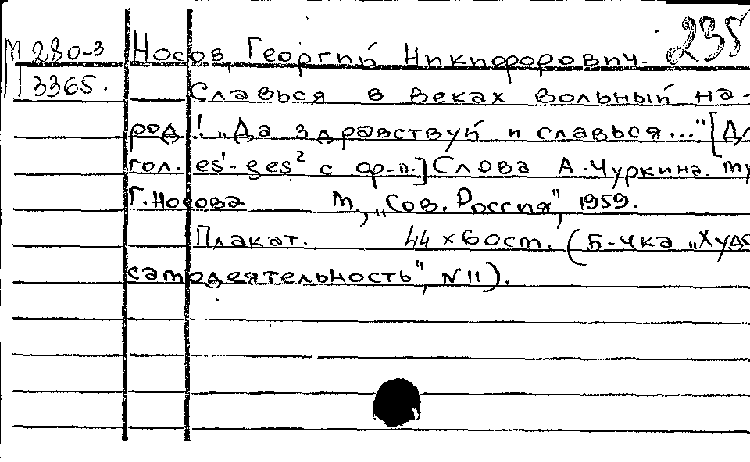 235
М 280-3 Носов, Георгий Никифорович.
3365. Славься в веках вольный на-
род! „Да здравствуй и славься..." [Дл
гол. es'-ges² с ф-п.] Слова А. Чуркина. му
Г. Носова М., „Сов. Россия", 1959.
Плакат. 44×60 cm. (Б-чка „Худо
самодеятельность", N 11).